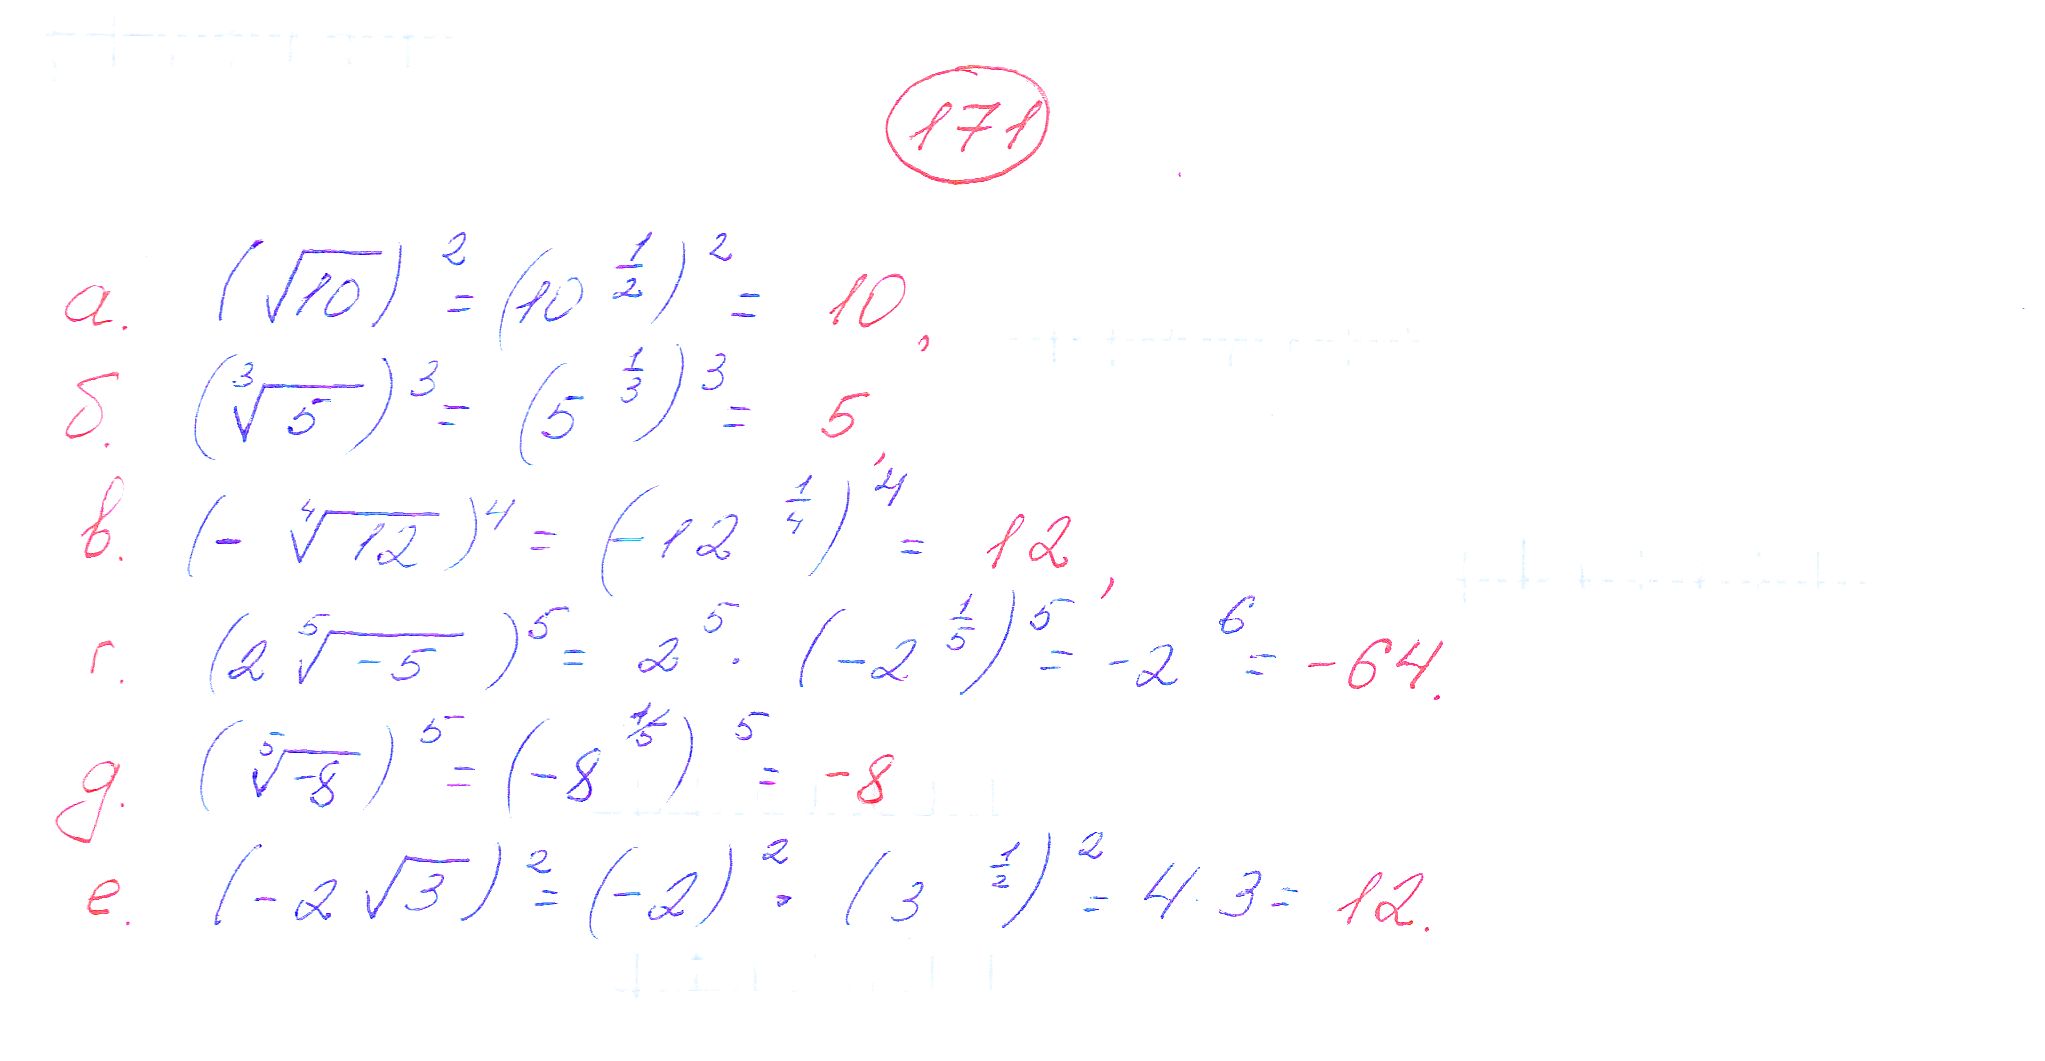 171
а. (√10)² = (10^(1/2))² = 10,
б. (∛5)³ = (5^(1/3))³ = 5,
в. (-∜12)⁴ = (-12^(1/4))⁴ = 12,
г. (2⁵√-5)⁵ = 2⁵ · (-2^(1/5))⁵ = -2⁶ = -64.
д. (⁵√-8)⁵ = (-8^(1/5))⁵ = -8
е. (-2√3)² = (-2)² · (3^(1/2))² = 4·3 = 12.